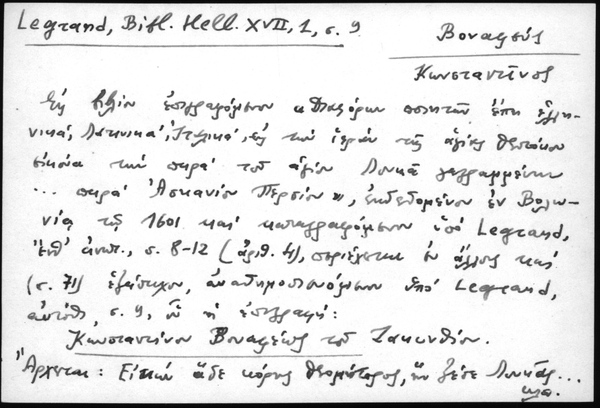 Legrand, Bibl. Hell. XVII, 1, σ. 9
Βοναφεύς
Κωνσταντῖνος
Εἰς βιβλίον ἐπιγραφόμενον «Διαφόρων ποιητῶν ἔπη ἑλλη-
νικά, Λατινικά, Ἰταλικά, εἰς τὴν ἱερὰν τῆς ἁγίας Θεοτόκου
εἰκόνα τὴν παρὰ τοῦ ἁγίου Λουκᾶ γεγραμμένην
... παρὰ Ἀσκανίου Περσίου», ἐκδεδομένον ἐν Βολω-
νίᾳ τῷ 1601 καὶ καταγραφόμενον ὑπὸ Legrand,
ἔνθ' ἀνωτ., σ. 8-12 (ἀριθ. 4), περιέχεται ἐν ἄλλοις καὶ
(σ. 71) ἑξάστιχον, ἀναδημοσιευόμενον ὑπὸ Legrand,
αὐτόθι, σ. 9, ὑπὸ ἐπιγραφή:
Κωνσταντίνου Βοναφέως τοῦ Ζακυνθίου.
Ἄρχεται: Εἰκὼν ἅδε κόρης θεομήτορος, ἣν ξέσε Λουκᾶς...
κλπ.